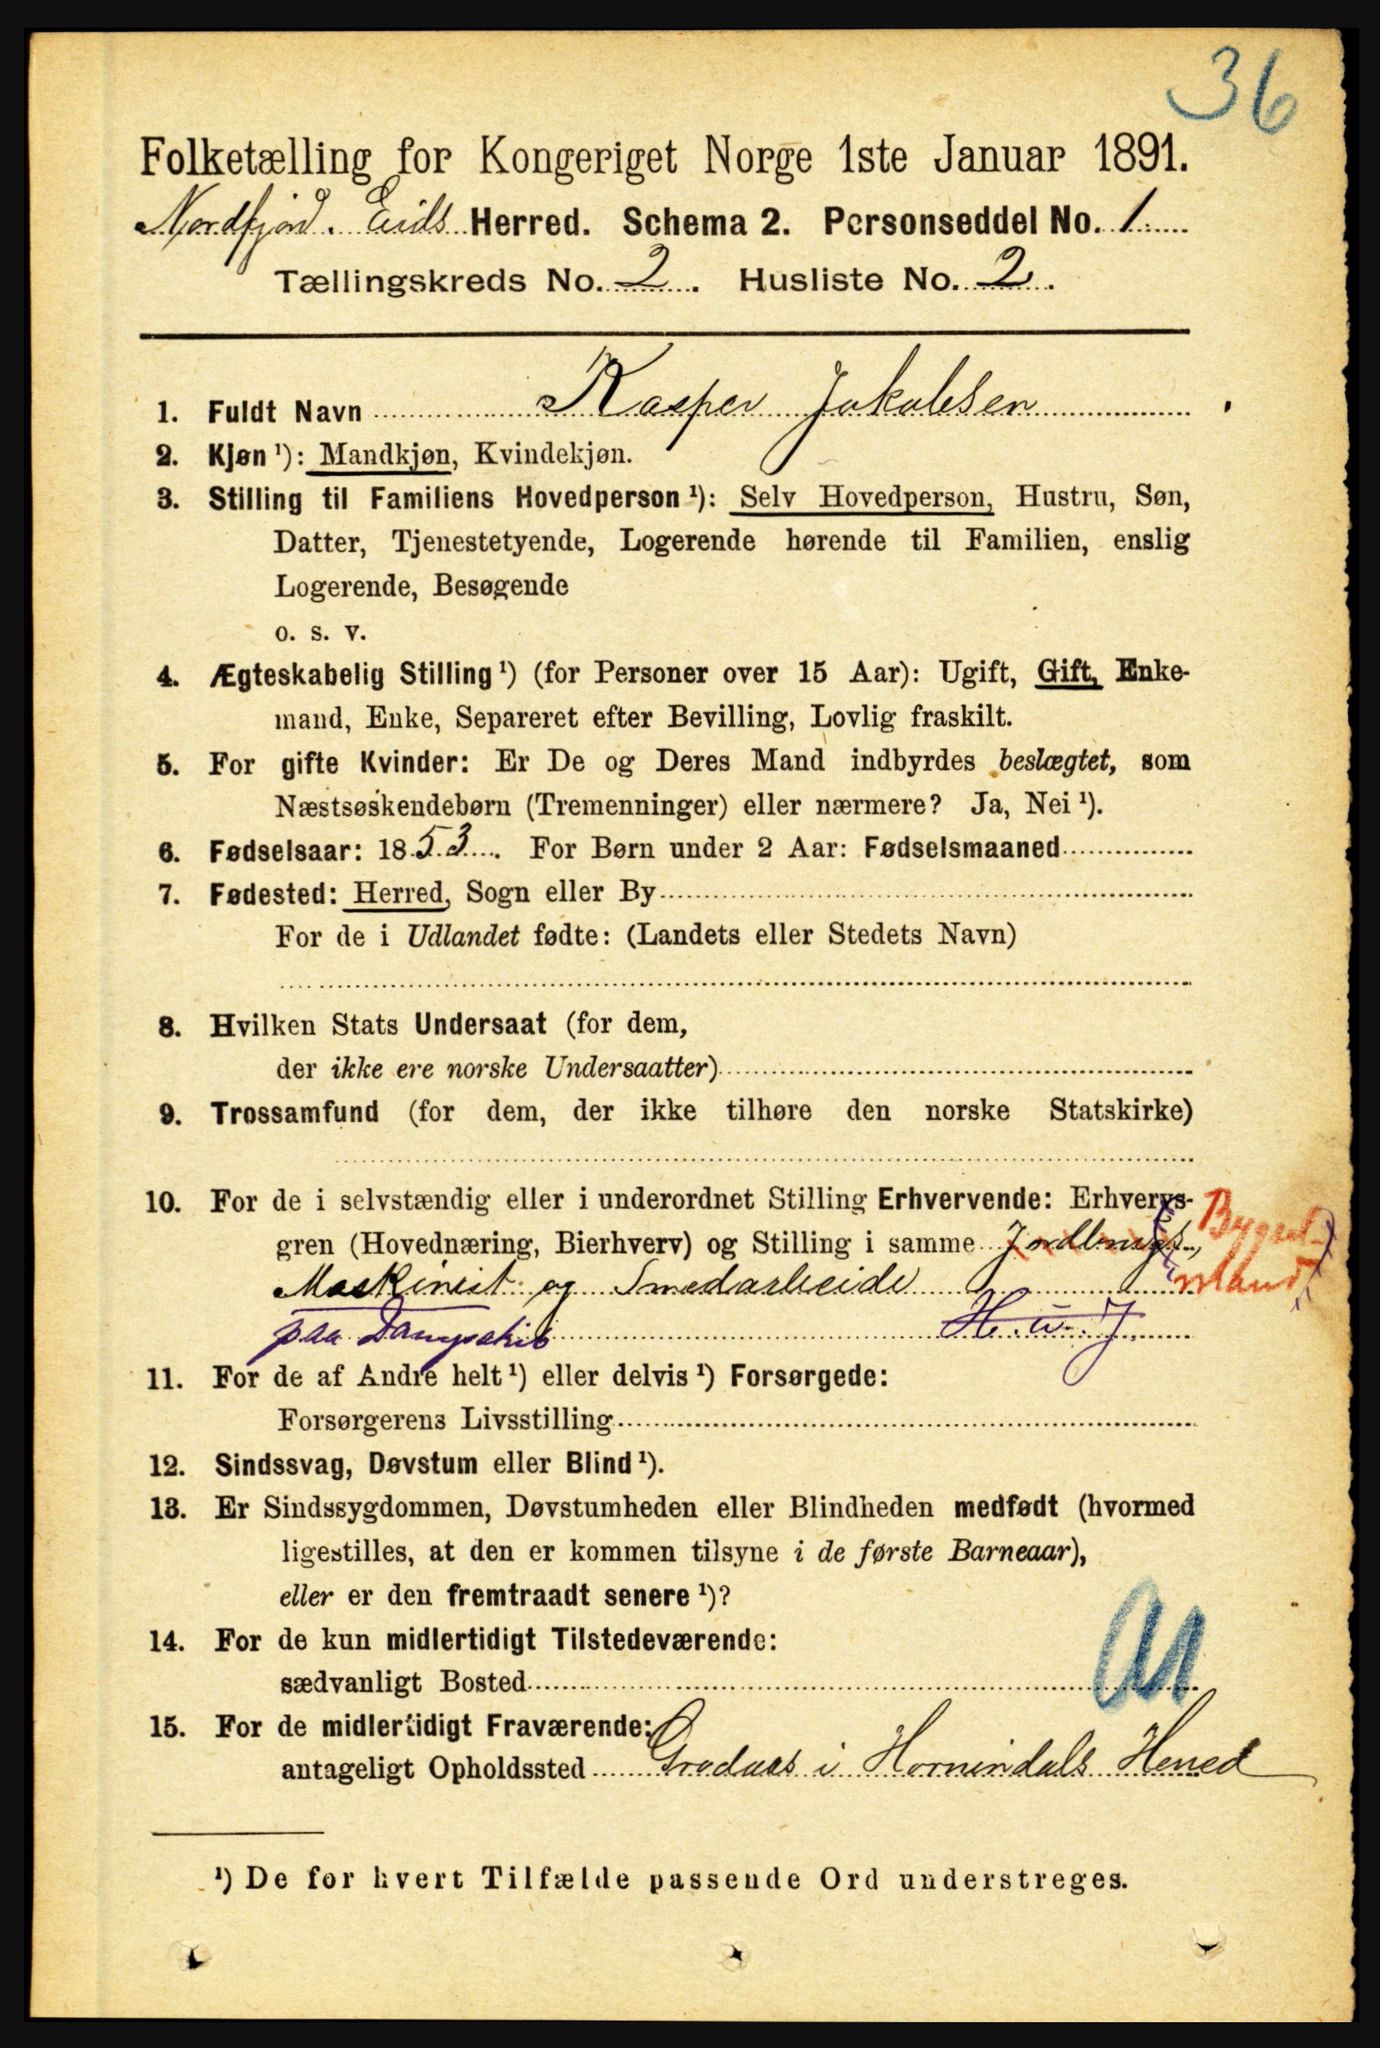 36
Folketælling for Kongeriget Norge 1ste Januar 1891.
Nordfjord. Eids Herred. Schema 2. Personseddel No. 1
Tællingskreds No. 2. Husliste No. 2.
1. Fuldt Navn Kasper Jakobsen
2. Kjøn ¹): Mandkjøn, Kvindekjøn.
3. Stilling til Familiens Hovedperson ¹): Selv Hovedperson, Hustru, Søn,
Datter, Tjenestetyende, Logerende hørende til Familien, enslig
Logerende, Besøgende
o. s. v.
4. Ægteskabelig Stilling ¹) (for Personer over 15 Aar): Ugift, Gift, Enke-
mand, Enke, Separeret efter Bevilling, Lovlig fraskilt.
5. For gifte Kvinder: Er De og Deres Mand indbyrdes beslægtet, som
Næstsøskendebørn (Tremenninger) eller nærmere? Ja, Nei ¹).
6. Fødselsaar: 1853. For Børn under 2 Aar: Fødselsmaaned
7. Fødested: Herred, Sogn eller By
For de i Udlandet fødte: (Landets eller Stedets Navn)
8. Hvilken Stats Undersaat (for dem,
der ikke ere norske Undersaatter)
9. Trossamfund (for dem, der ikke tilhøre den norske Statskirke)
10. For de i selvstændig eller i underordnet Stilling Erhvervende: Erhvervs-
gren (Hovednæring, Bierhverv) og Stilling i samme Jordbrugs,
Maskinist og Smedarbeide
paa Dampskib
11. For de af Andre helt ¹) eller delvis ¹) Forsørgede:
Forsørgerens Livsstilling
12. Sindssvag, Døvstum eller Blind ¹).
13. Er Sindssygdommen, Døvstumheden eller Blindheden medfødt (hvormed
ligestilles, at den er kommen tilsyne i de første Barneaar),
eller er den fremtraadt senere ¹)?
14. For de kun midlertidigt Tilstedeværende:
sædvanligt Bosted
15. For de midlertidigt Fraværende:
antageligt Opholdssted Grodaas i Hornindals Herred
¹) De for hvert Tilfælde passende Ord understreges.